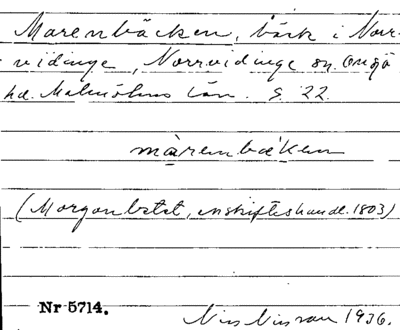 Marenbäcken, bäck i Norr-
vidinge, Norrvidinge sn. Onsjö
hd. Malmöhus län. S. 22.
màrenbæken
(Morgonbetet, enskifteshandl. 1803)
Nr 5714.
Nils Nilsson 1936.